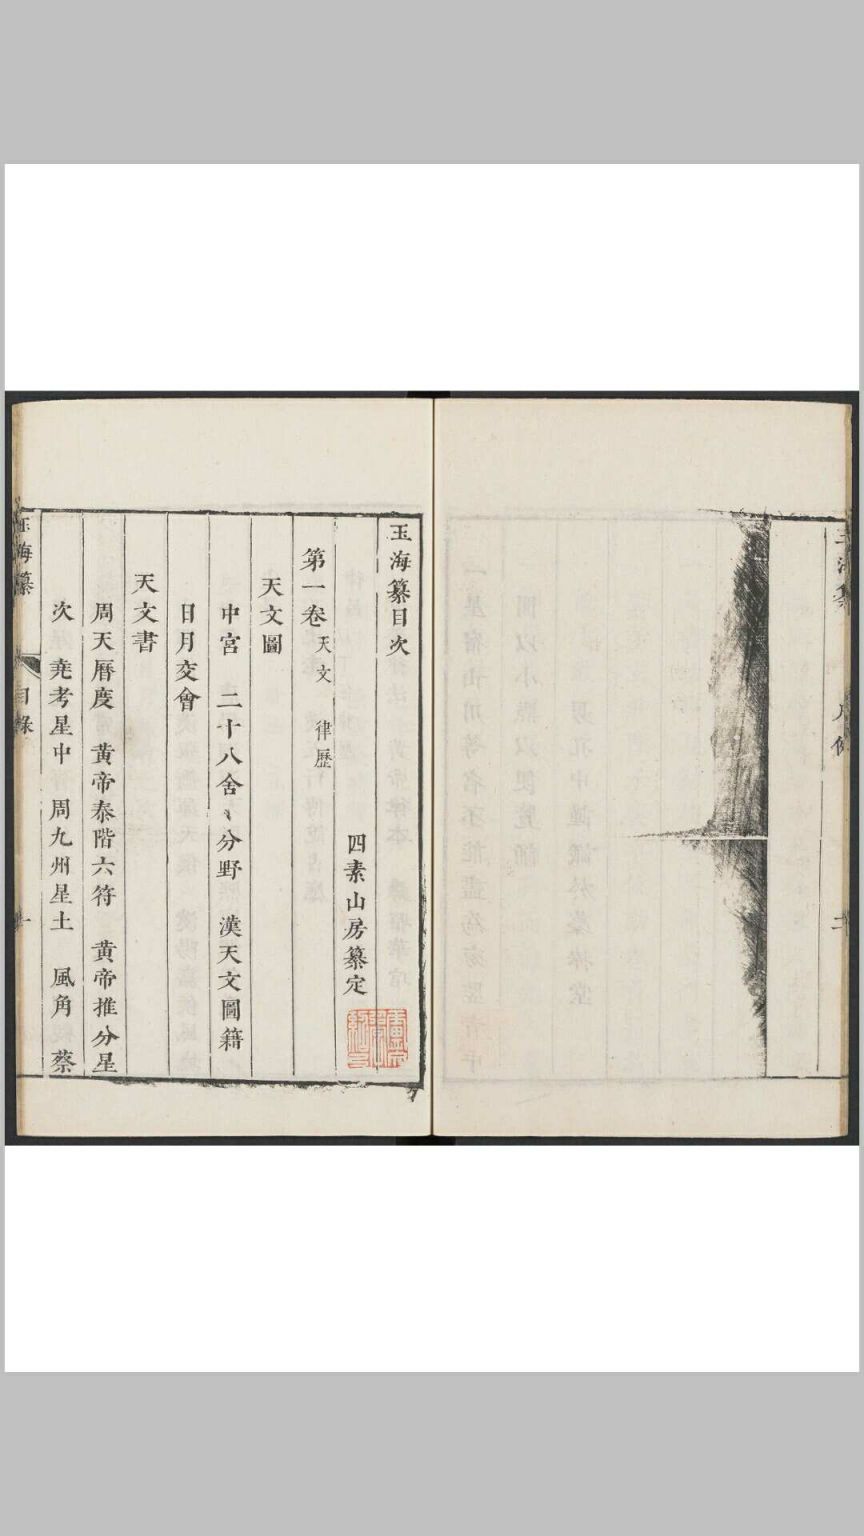 玉海纂
二
玉海纂目次
四素山房纂定
第一卷 天文 律歷
天文圖
中宮 二十八舍、分野 漢天文圖籍
日月交會
天文書
周天曆度 黃帝泰階六符 黃帝推分星
次 堯考星中 周九州星土 風角 蔡
玉海纂 目錄 一